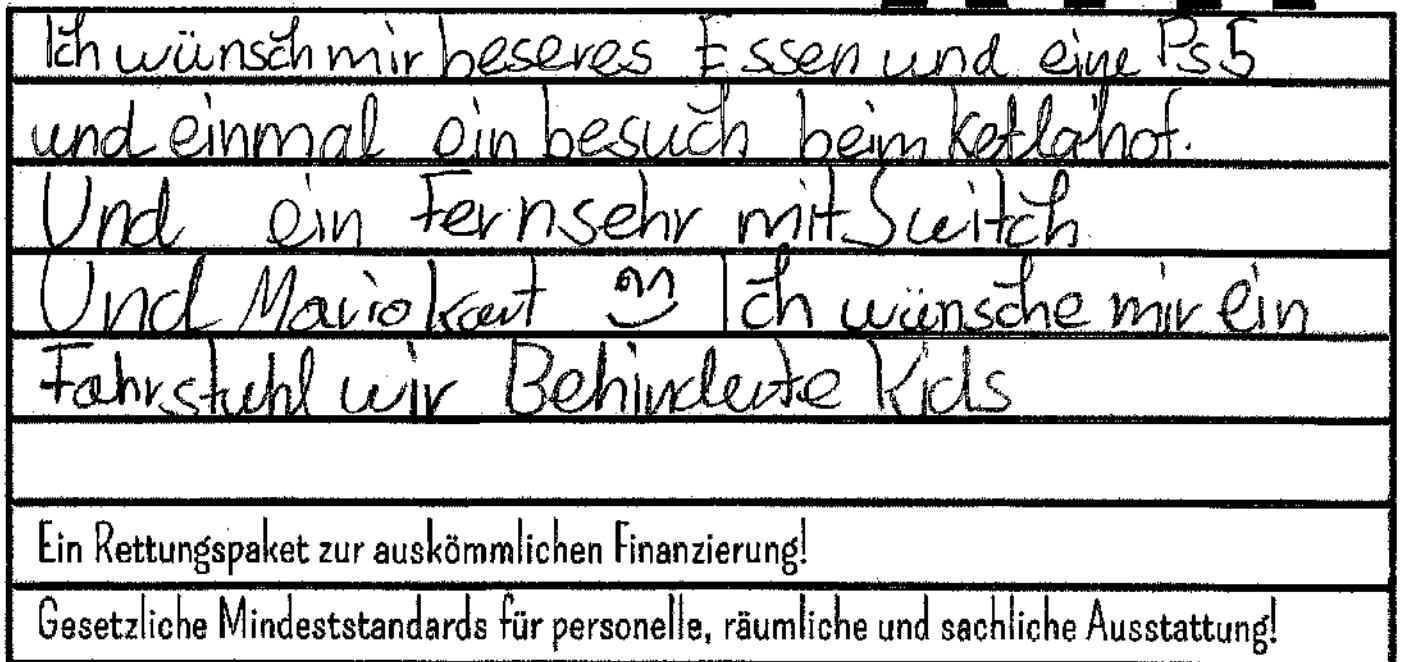 Ich wünsch mir beseres Essen und eine Ps5
und einmal ein besuch beim
Und ein Fernsehr mit Switch
Und Mario kart Ich wünsche mir ein
Fahrstuhl wir Behinderte Kids
Ein Rettungspaket zur auskömmlichen Finanzierung!
Gesetzliche Mindeststandards für personelle, räumliche und sachliche Ausstattung!